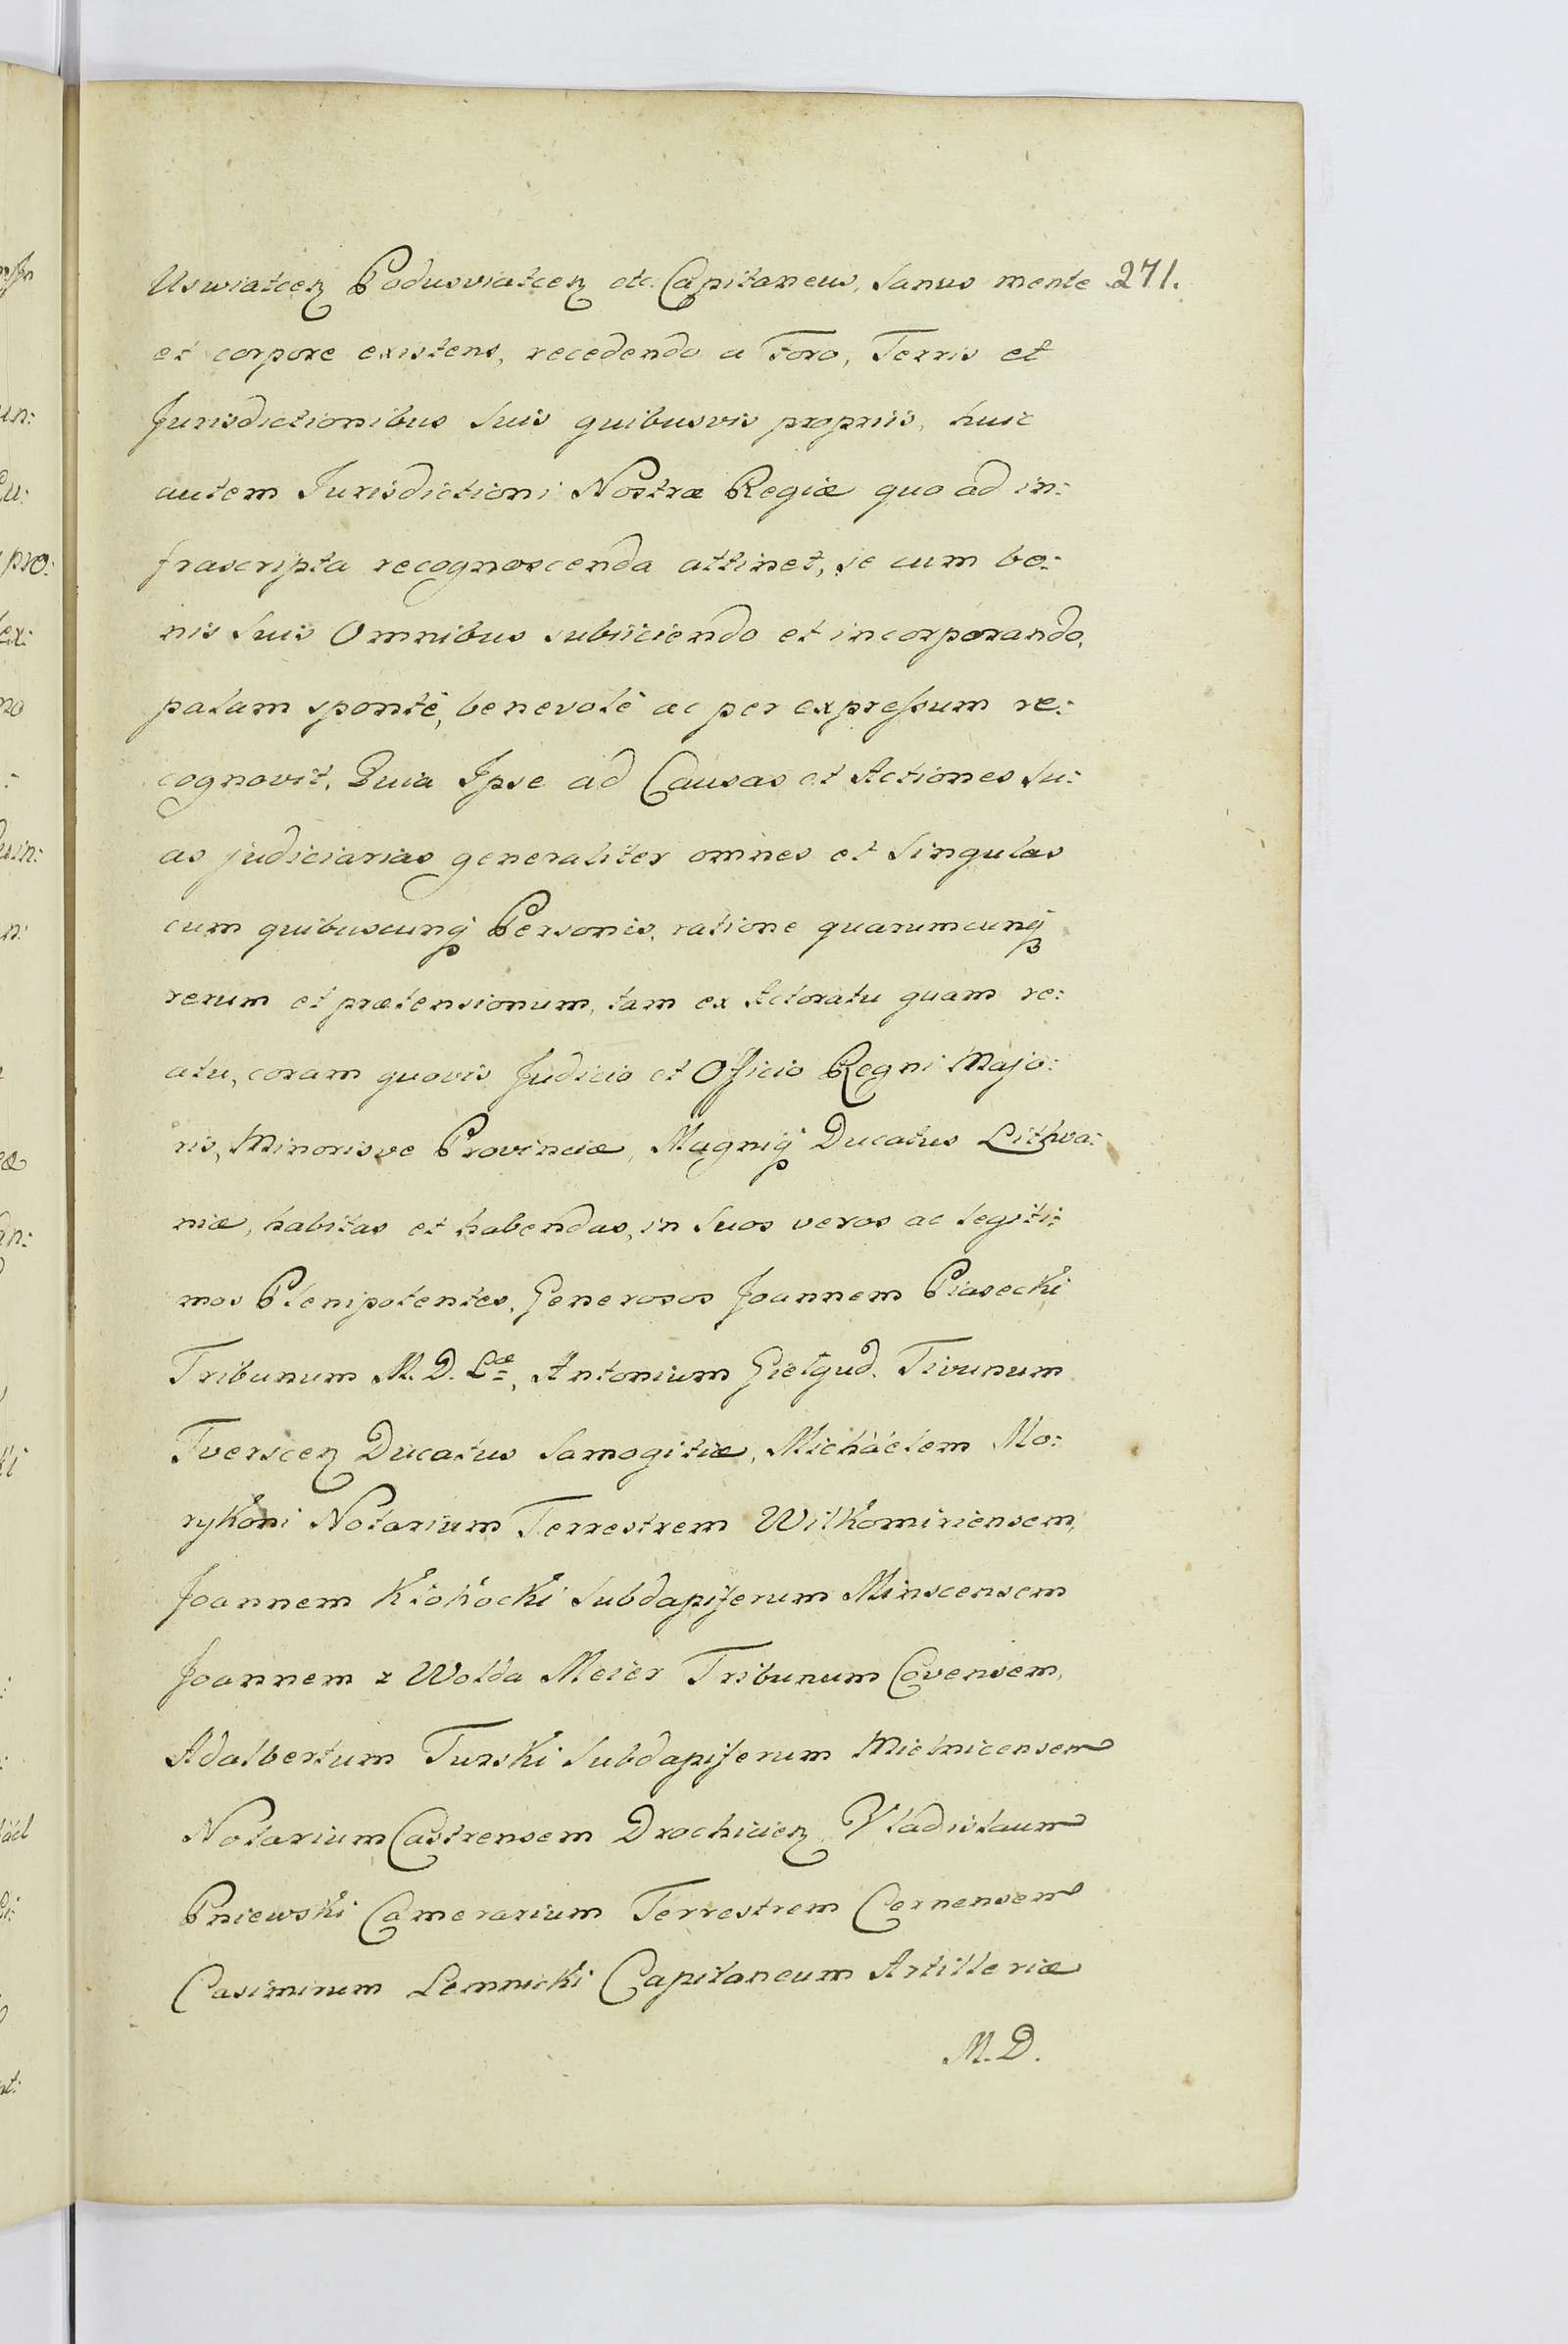 Uswiatcen Podusviatcen etc. Capitaneus, Sanus mente 271.
et corpore existens, recedendo a Foro, Terris et
Jurisdictionibus Suis quibusvis propriis, huic
autem Jurisdictioni Nostræ Regiæ quo ad in:
frascripta recognoscenda attinet, se cum bo:
nis Suis Omnibus subiiciendo et incorporando,
palam spontè, benevolè ac per expressum re:
cognovit, Quia Ipse ad Causas et Actiones Su:
as judiciarias generaliter omnes et Singulas
cum quibuscunq Personis, ratione quarumcunq
rerum et prætensionum, tam ex Actoratu quam re:
atu, coram quovis Judicio et Officio Regni Majo:
ris, Minorisve Provinciæ, Magniq Ducatus Lithva:
niæ, habitas et habendas, in Suos veros ac legiti:
mos Plenipotentes, Generosos Joannem Piasecki
Tribunum M. D. Læ, Antonium Giełgud. Tivunum
Tverscen Ducatus Samogitiæ, Michàelem Mo:
rykoni Notarium Terrestrem Wilkomiriensem,
Joannem Kłokocki Subdapiferum Minscensem
Joannem z Wolda Meier Tribunum Covensem,
Adalbertum Turski Subdapiferum Mielnicensem
Notarium Castrensem Drochicien Vladislaum
Pniewski Camerarium Terrestrem Cernensem
Casimirum Lemnicki Capitaneum Artilleriæ
M. D.